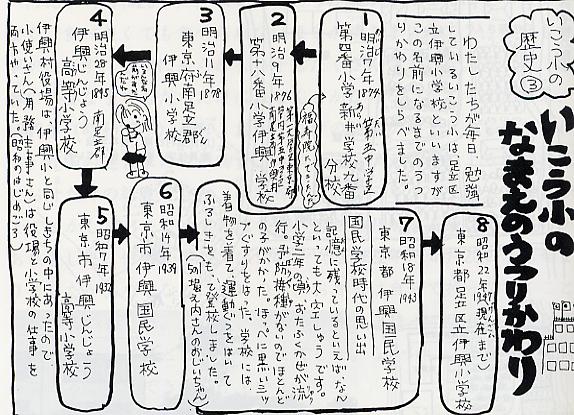 いこう小の
歴史③
いこう小の
なまえのうつりかわり
わたしたちが毎日、勉強
しているいこう小は足立区
立伊興小学校といいますが
この名前になるまでのうつ
りかわりをしらべました。
1
明治7年1874
第四番小学 新井学校九番
分校
2
明治9年1876
第十八番小学伊興学校
3
明治11年1878
東京府南足立郡
伊興小学校
4
明治28年1895 南足立郡
伊興じんじょう
高等小学校
伊興村役場は伊興小と同じしき地の中にあったので
小使いさん(用務主事さん)は役場と小学校の仕事を
両方やっていた。(昭和のはじめごろ)
5
昭和7年1932
東京市伊興じんじょう
高等小学校
6
昭和14年1939
東京市伊興国民学校
7
昭和18年1943
東京都伊興国民学校
国民学校時代の思い出
記憶に残っているといえば、なん
といっても大空しゅうです。
小学二年の頃、おたふくかぜが流
行。予防接種がないのでほとんど
の子がかかった。ほっぺに黒いシッ
プぐすりをはった。学校には、
着物を着て、運動ぐつをはいて
ふろしきをもって登校しました。
8
昭和22年1947(現在まで)
東京都足立区立伊興小学校